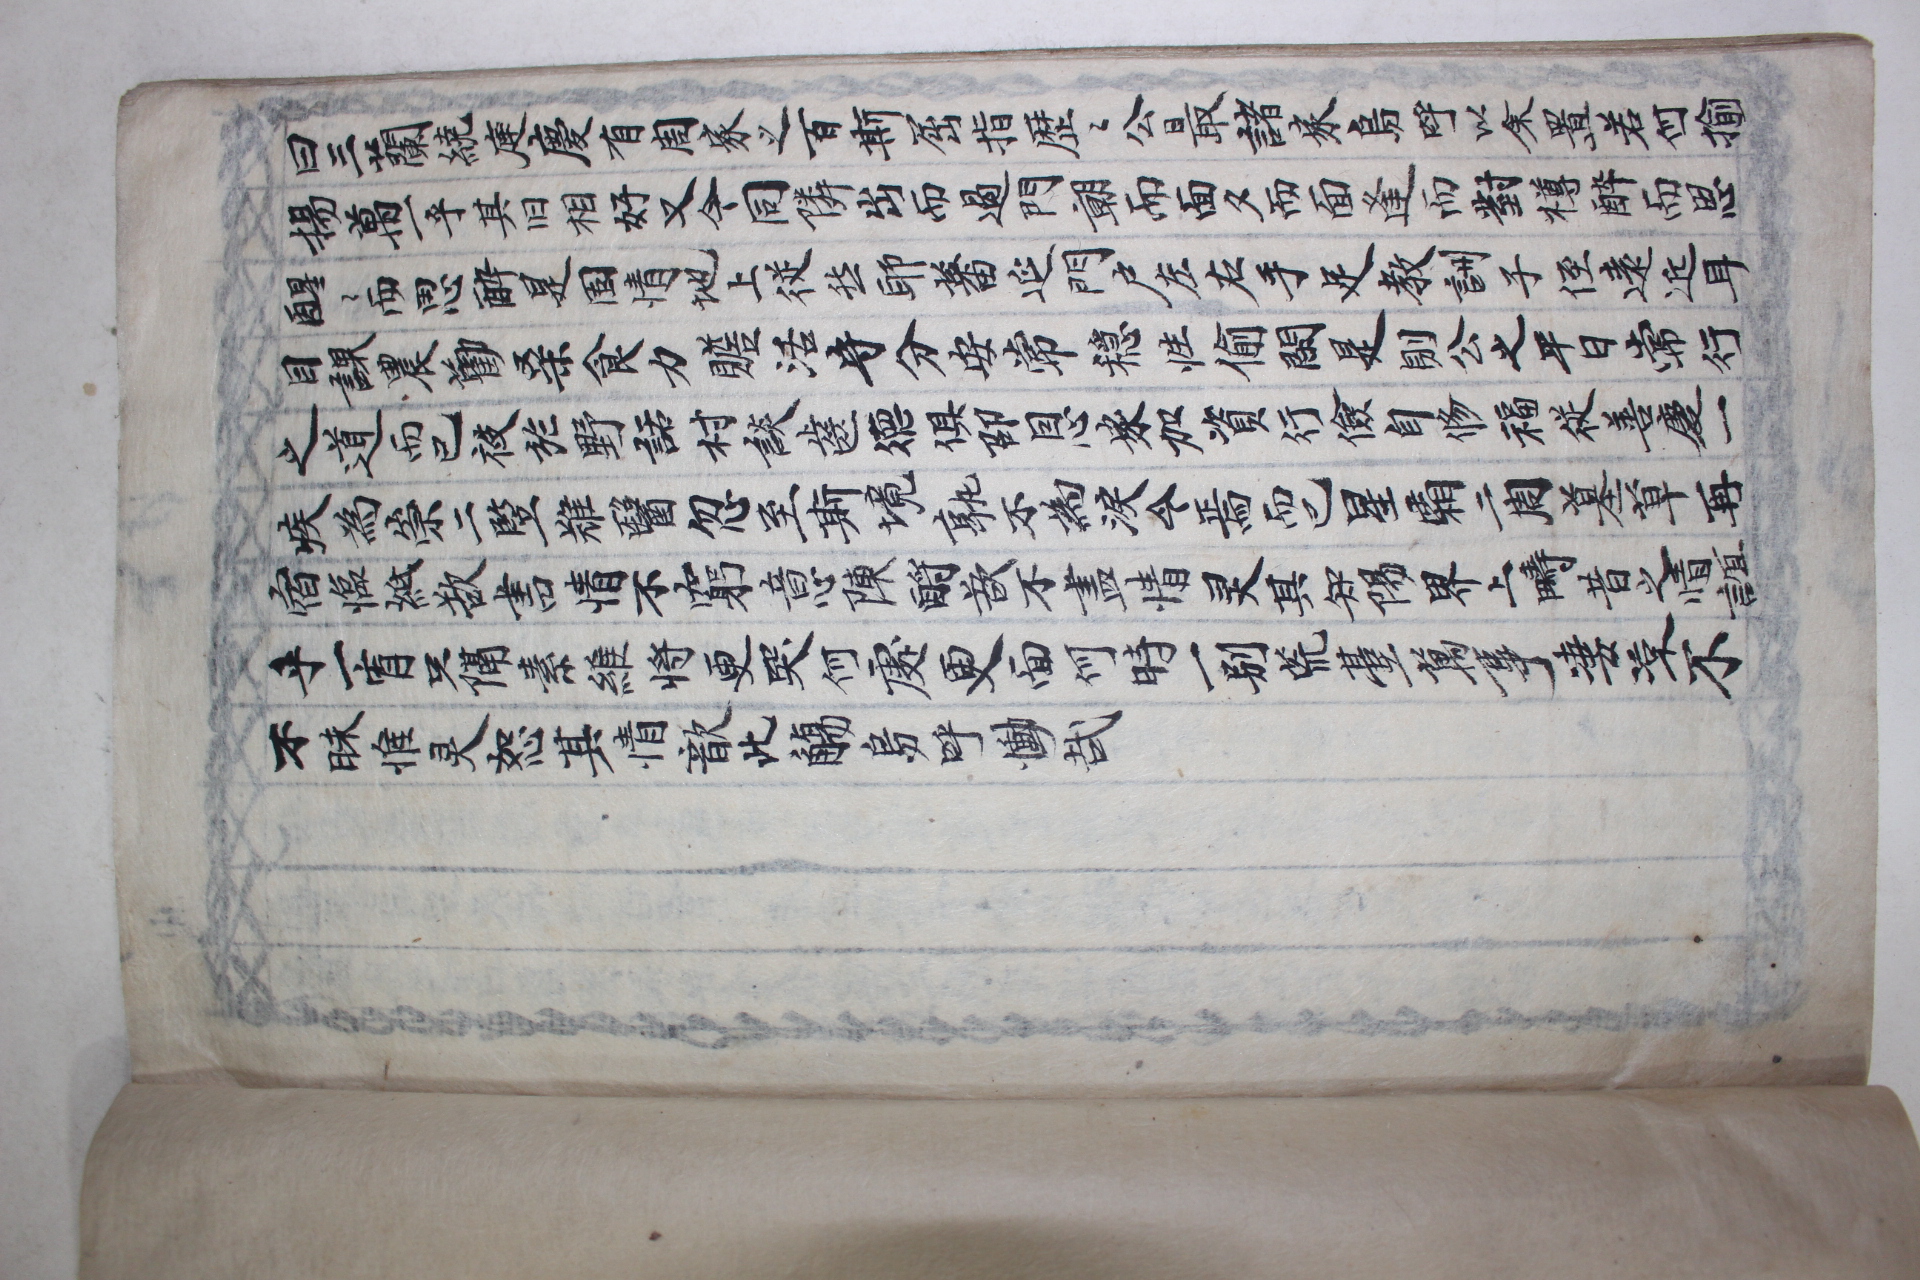 曰三蘭繞庭慶有周家之百斯屈指歷〻公最諸家烏呼以余置若何揄
揚萬一乎其旧相好又今同隣出而過門朝而面夕而面逢而對樽醉而思
醒〻而思醉是固情地上從然師蕃延門戶左右手足教訓子侄遠近耳
目課農勸桑食力贍活守分安常穩性偷閑是則公之平日常行
之道而已被於野話村談齒德俱卲恳家加資行儉自修福從善慶一
疾為祟二竪难醫忽至斯境孰不為淚今焉而已星霜二周墓草再
宿臨紙欲書情不窮意陳酹欲不盡情灵其知陽界上疇昔之情誼
乎一宵只隔素維將更哭何處更面何時一別荒臺萬事凄凉不
不昧惟灵恕其情歆此觴烏呼慟哉